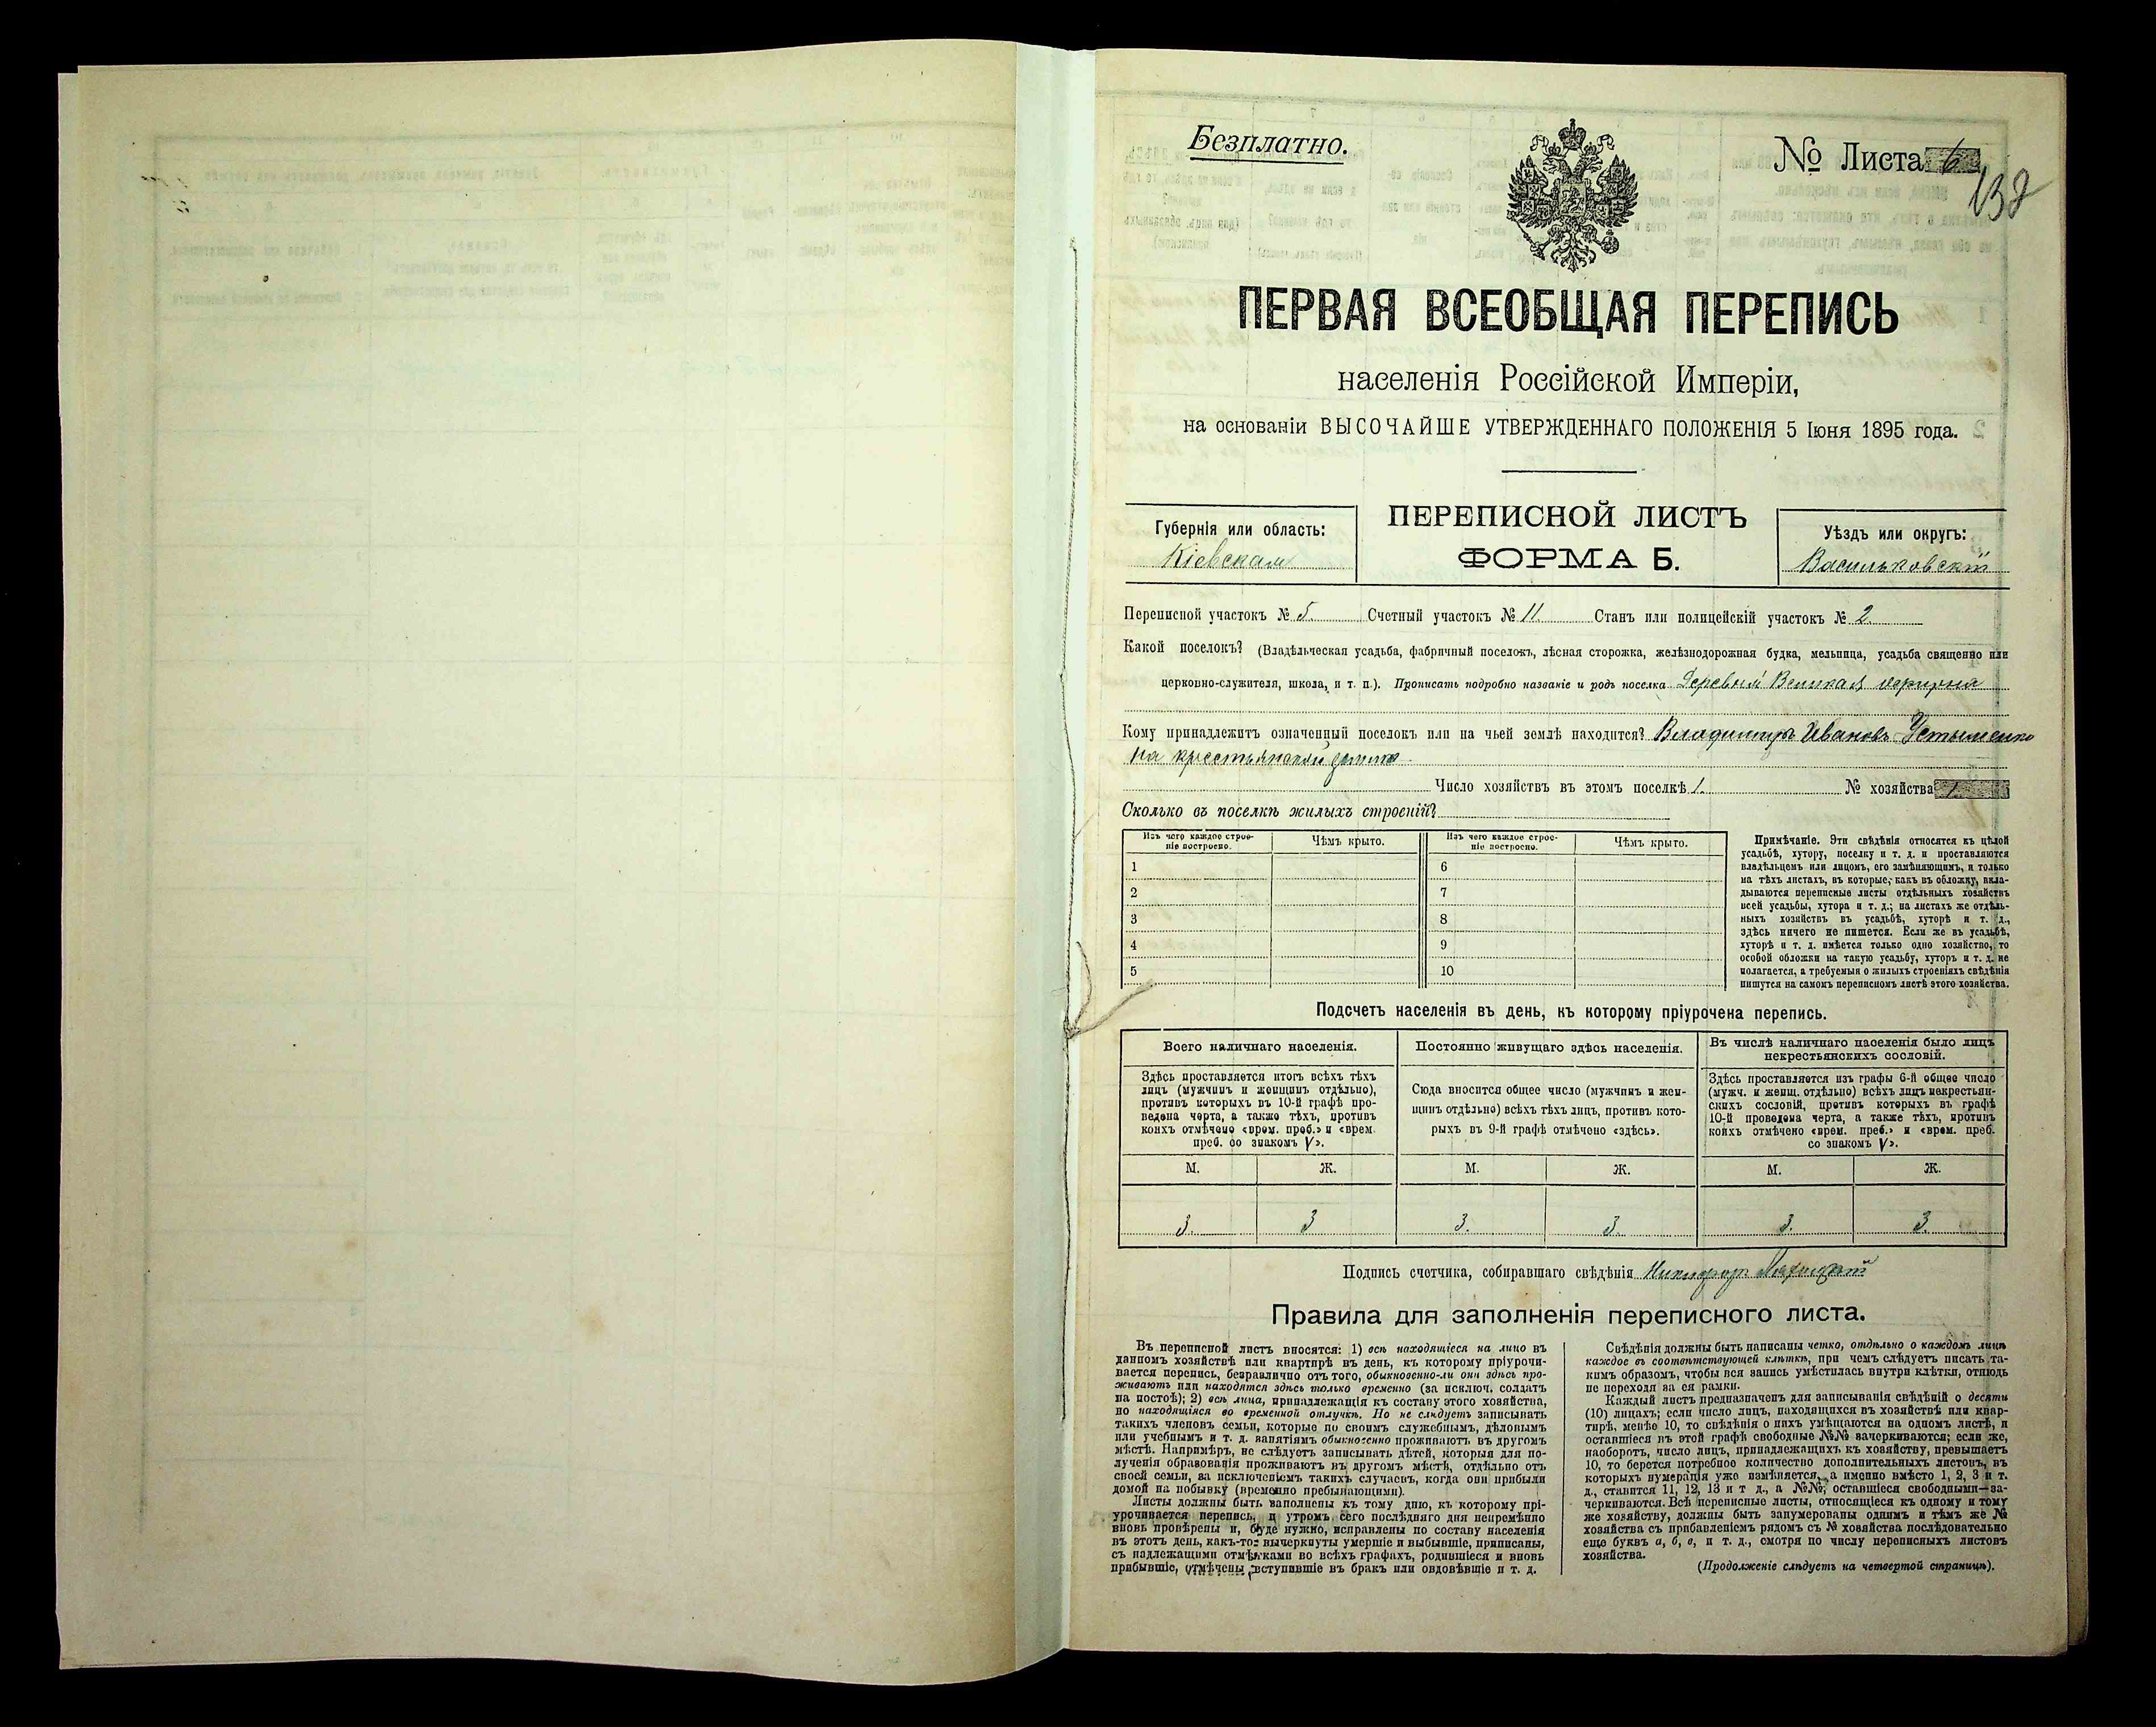 Безплатно.
№ Листа 6
132
ПЕРВАЯ ВСЕОБЩАЯ ПЕРЕПИСЬ
населенія Россійской Имперіи,
на основаніи ВЫСОЧАЙШЕ УТВЕРЖДЕННАГО ПОЛОЖЕНІЯ 5 Іюня 1895 года.
Губернія или область:
Кіевская
ПЕРЕПИСНОЙ ЛИСТЪ
ФОРМА Б.
Уѣздъ или округъ:
Васильковскій
Переписной участокъ № 5. Счетный участокъ № 11. Станъ или полицейскій участокъ № 2.
Какой поселокъ? (Владѣльческая усадьба, фабричный поселокъ, лѣсная сторожка, желѣзнодорожная будка, мельница, усадьба священно или
церковно-служителя, школа, и т. п.). Прописать подробно названіе и родъ поселка Деревня Великая
Кому принадлежитъ означенный поселокъ или на чьей землѣ находится? Владимиръ Ивановъ Устименко
на крестьянской землѣ.
Число хозяйствъ въ этомъ поселкѣ 1. № хозяйства 1.
Сколько въ поселкѣ жилыхъ строеній?
Изъ чего каждое строе-
ніе построено.
Чѣмъ крыто.
Изъ чего каждое строе-
ніе построено.
Чѣмъ крыто.
1 6
2 7
3 8
4 9
5 10
Примѣчаніе. Эти свѣдѣнія относятся къ цѣлой
усадьбѣ, хутору, поселку и т. д. и проставляются
владѣльцемъ или лицомъ, его замѣняющимъ, и только
на тѣхъ листахъ, въ которые, какъ въ обложку, вкла-
дываются переписные листы отдѣльныхъ хозяйствъ
всей усадьбы, хутора и т. д.; на листахъ же отдѣль-
ныхъ хозяйствъ въ усадьбѣ, хуторѣ и т. д.,
здѣсь ничего не пишется. Если же въ усадьбѣ,
хуторѣ и т. д. имѣется только одно хозяйство, то
особой обложки на такую усадьбу, хуторъ и т. д. не
полагается, а требуемыя о жилыхъ строеніяхъ свѣдѣнія
пишутся на самомъ переписномъ листѣ этого хозяйства.
Подсчетъ населенія въ день, къ которому пріурочена перепись.
Всего наличнаго населенія.
Здѣсь проставляется итогъ всѣхъ тѣхъ
лицъ (мужчинъ и женщинъ отдѣльно),
противъ которыхъ въ 10-й графѣ про-
ведена черта, а также тѣхъ, противъ
коихъ отмѣчено «врем. преб.» и «врем.
преб. со знакомъ V».
Постоянно живущаго здѣсь населенія.
Сюда вносится общее число (мужчинъ и жен-
щинъ отдѣльно) всѣхъ тѣхъ лицъ, противъ кото-
рыхъ въ 9-й графѣ отмѣчено «здѣсь».
Въ числѣ наличнаго населенія было лицъ
некрестьянскихъ сословій.
Здѣсь проставляется изъ графы 6-й общее число
(мужч. и женщ. отдѣльно) всѣхъ лицъ некрестьян-
скихъ сословій, противъ которыхъ въ графѣ
10-й проведена черта, а также тѣхъ, противъ
коихъ отмѣчено «врем. преб.» и «врем. преб.
со знакомъ V».
М. Ж. М. Ж. М. Ж.
3. 3 3. 3. 3. 3.
Подпись счетчика, собиравшаго свѣдѣнія Никифоръ
Правила для заполненія переписного листа.
Въ переписной листъ вносятся: 1) всѣ находящіеся на лицо въ
данномъ хозяйствѣ или квартирѣ въ день, къ которому пріурочи-
вается перепись, безразлично отъ того, обыкновенно-ли они здѣсь про-
живаютъ или находятся здѣсь только временно (за исключ. солдатъ
на постоѣ); 2) всѣ лица, принадлежащія къ составу этого хозяйства,
но находящіяся во временной отлучкѣ. Но не слѣдуетъ записывать
такихъ членовъ семьи, которые по своимъ служебнымъ, дѣловымъ
или учебнымъ и т. д. занятіямъ обыкновенно проживаютъ въ другомъ
мѣстѣ. Напримѣръ, не слѣдуетъ записывать дѣтей, которыя для по-
лученія образованія проживаютъ въ другомъ мѣстѣ, отдѣльно отъ
своей семьи, за исключеніемъ такихъ случаевъ, когда они прибыли
домой на побывку (временно пребывающими).
Листы должны быть заполнены къ тому дню, къ которому прі-
урочивается перепись, и утромъ сего послѣдняго дня непремѣнно
вновь провѣрены и, буде нужно, исправлены по составу населенія
въ этотъ день, какъ-то: вычеркнуты умершіе и выбывшіе, приписаны,
съ надлежащими отмѣтками во всѣхъ графахъ, родившіеся и вновь
прибывшіе, отмѣчены вступившіе въ бракъ или овдовѣвшіе и т. д.
Свѣдѣнія должны быть написаны четко, отдѣльно о каждомъ лицѣ
каждое въ соотвѣтствующей клѣткѣ, при чемъ слѣдуетъ писать та-
кимъ образомъ, чтобы вся запись умѣстилась внутри клѣтки, отнюдь
не переходя за ея рамки.
Каждый листъ предназначенъ для записыванія свѣдѣній о десяти
(10) лицахъ; если число лицъ, находящихся въ хозяйствѣ или квар-
тирѣ, менѣе 10, то свѣдѣнія о нихъ умѣщаются на одномъ листѣ, и
оставшіеся въ этой графѣ свободные №№ зачеркиваются; если же,
наоборотъ, число лицъ, принадлежащихъ къ хозяйству, превышаетъ
10, то берется потребное количество дополнительныхъ листовъ, въ
которыхъ нумерація уже измѣняется, а именно вмѣсто 1, 2, 3 и т.
д., ставится 11, 12, 13 и т д., а №№, оставшіеся свободными—за-
черкиваются. Всѣ переписные листы, относящіеся къ одному и тому
же хозяйству, должны быть занумерованы однимъ и тѣмъ же №
хозяйства съ прибавленіемъ рядомъ съ № хозяйства послѣдовательно
еще буквъ а, б, в, и т. д., смотря по числу переписныхъ листовъ
хозяйства.
(Продолженіе слѣдуетъ на четвертой страницѣ).